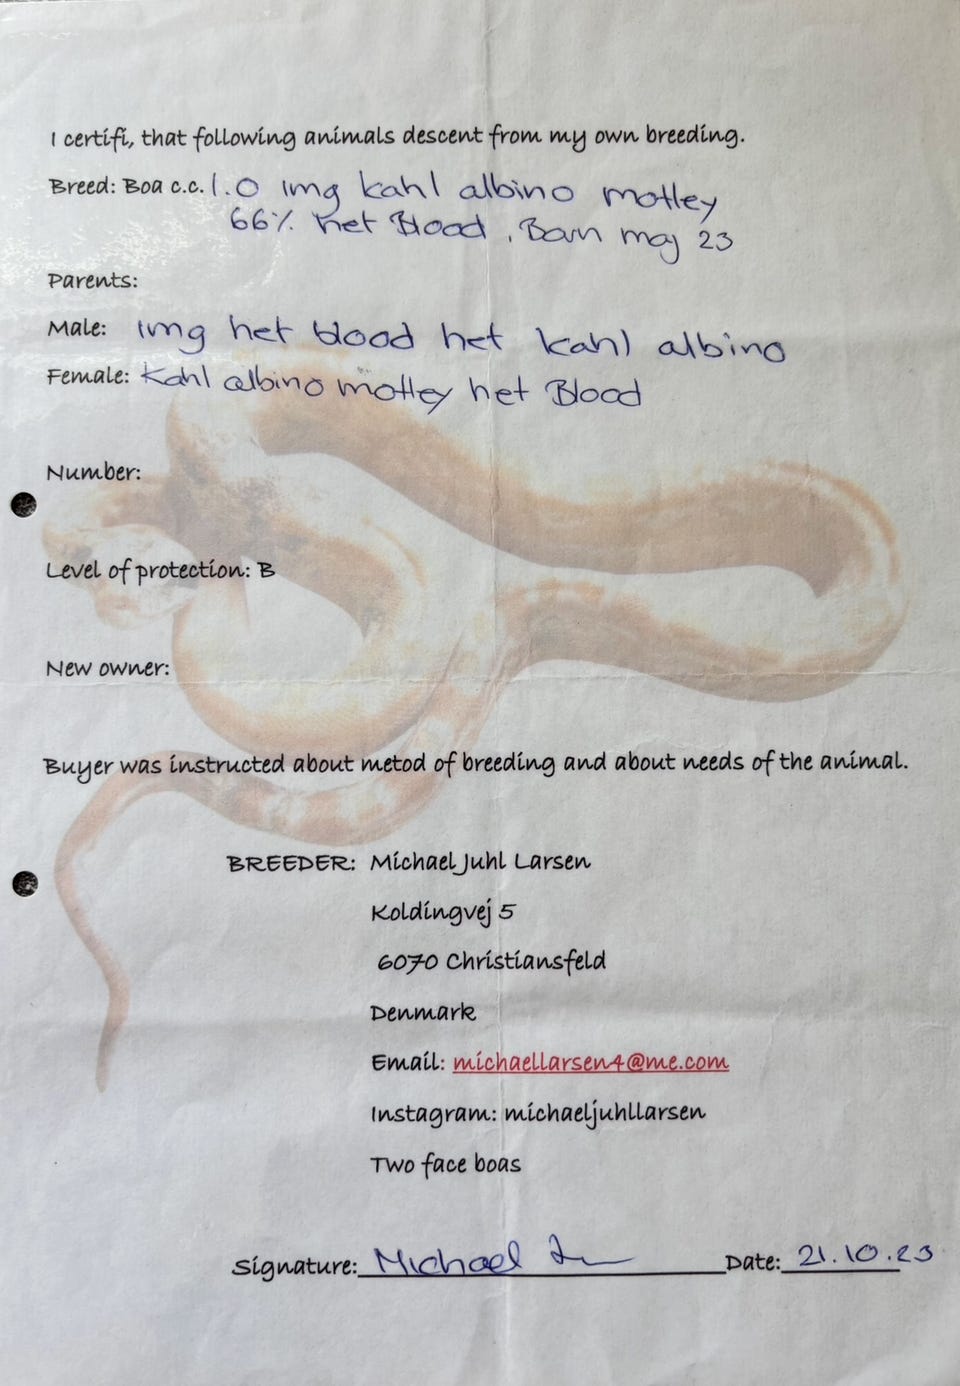 I certifi, that following animals descent from my own breeding.
Breed: Boa c.c. 1.0 img kahl albino motley
66% het Blood, Born maj 23
Parents:
Male: img het blood het kahl albino
Female: Kahl albino motley het Blood
Number:
Level of protection: B
New owner:
Buyer was instructed about metod of breeding and about needs of the animal.
BREEDER: Michael Juhl Larsen
Koldingvej 5
6070 Christiansfeld
Denmark
Email: michaellarsen4@me.com
Instagram: michaeljuhllarsen
Two face boas
Signature: Michael Date: 21.10.23